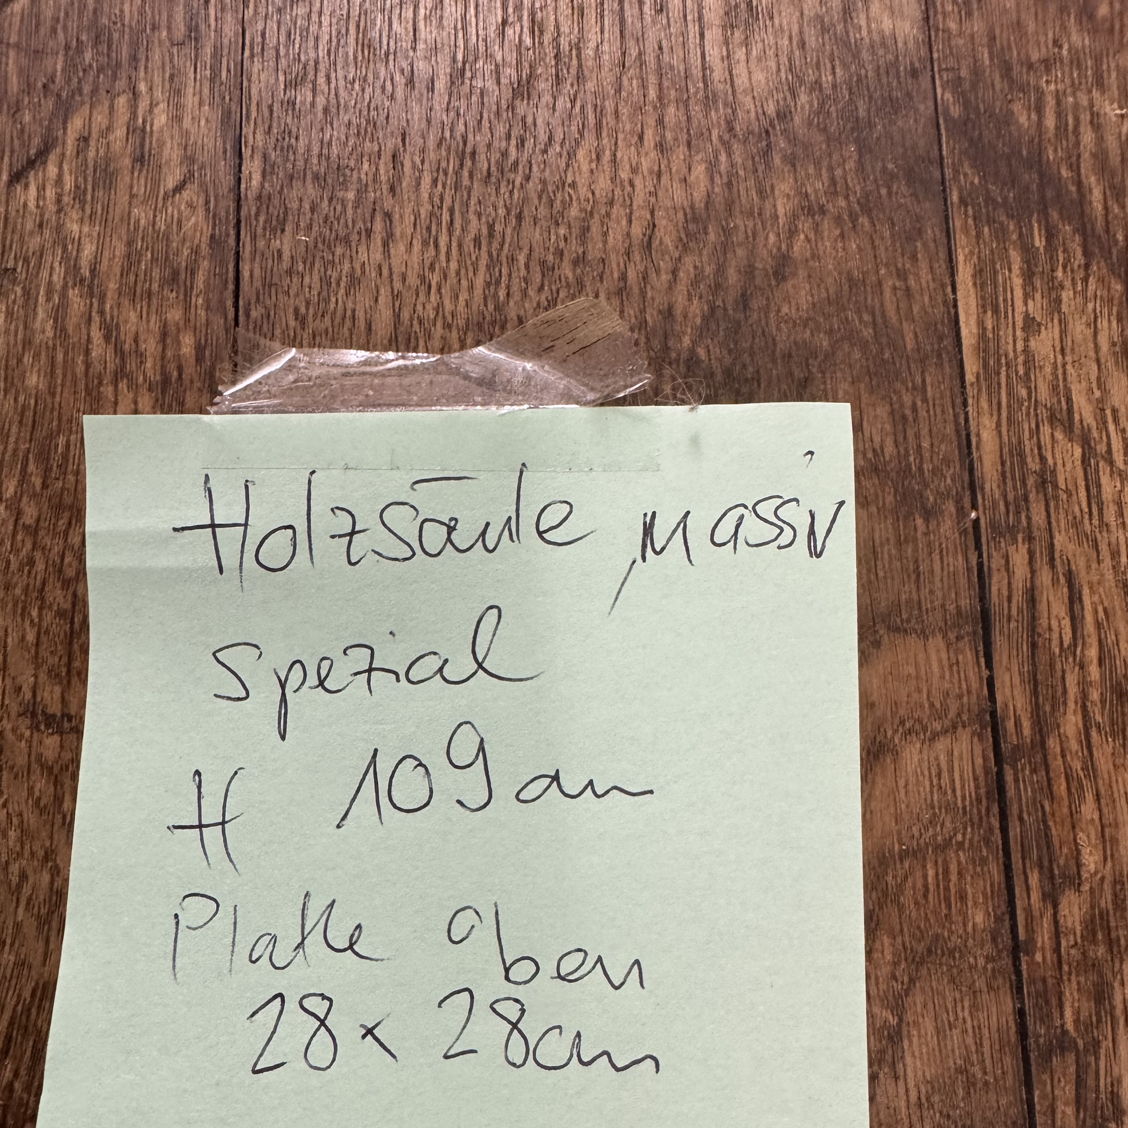 Holzsäule, massiv
spezial
H 109 cm
Platte oben
28 x 28 cm